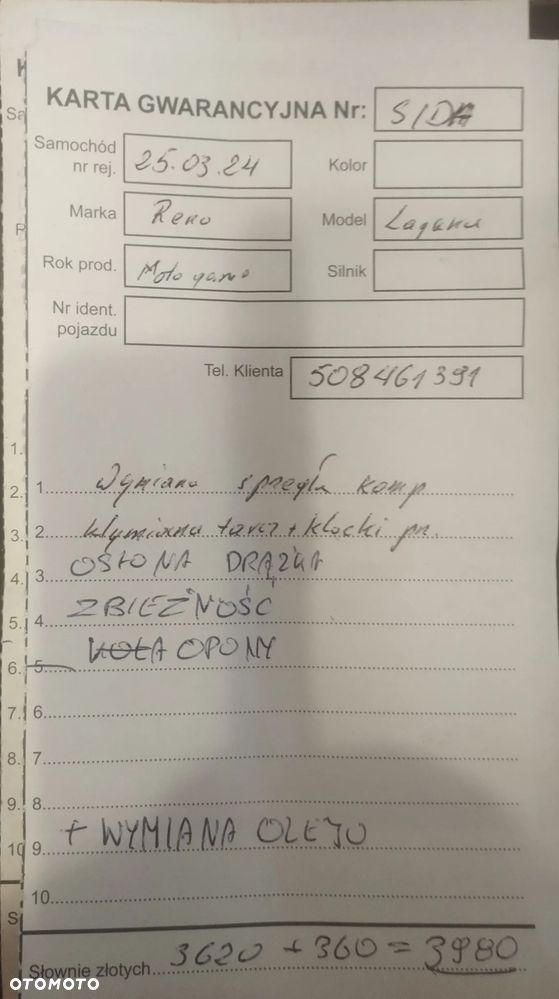 KARTA GWARANCYJNA Nr: S/D
Samochód nr rej. 25.03.24 Kolor
Marka Reno Model Laguna
Rok prod. Silnik
Nr ident. pojazdu
Tel. Klienta 508461391
1. Wymiana sprzęgła komp
2. Wymiana tarcz + klocki pn.
3. OSŁONA DRĄŻKA
4. ZBIEŻNOŚĆ
5. KOŁA OPONY
6.
7.
8.
9. + WYMIANA OLEJU
10.
Słownie złotych 3620 + 360 = 3980
OTOMOTO